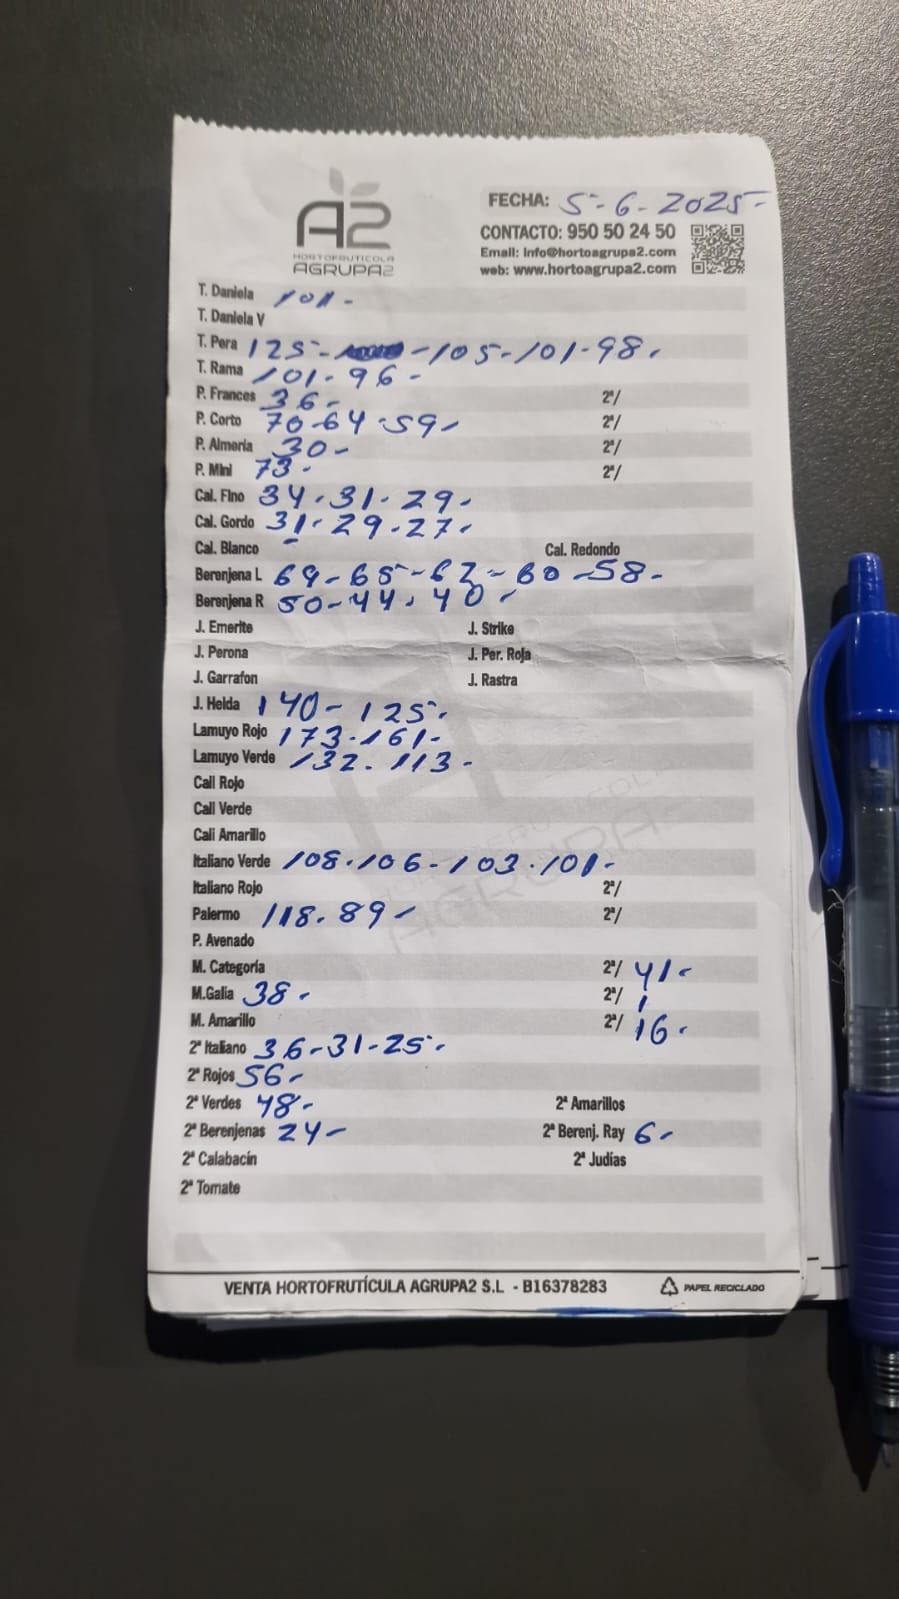 A2
HORTOFRUTICOLA
AGRUPA2
FECHA: 5-6-2025-
CONTACTO: 950 50 24 50
Email: info@hortoagrupa2.com
web: www.hortoagrupa2.com
T. Daniela 101-
T. Daniela V
T. Pera 125- -105-101-98.
T. Rama 101-96-
P. Frances 36- 2ª/
P. Corto 70-64-59- 2ª/
P. Almería 30- 2ª/
P. Mini 73- 2ª/
Cal. Fino 34-31-29.
Cal. Gordo 31-29-27.
Cal. Blanco - Cal. Redondo
Berenjena L 69-65-62-60-58-
Berenjena R 50-44.40-
J. Emerite J. Strike
J. Perona J. Per. Roja
J. Garrafon J. Rastra
J. Helda 140-125-
Lamuyo Rojo 173-161-
Lamuyo Verde 132-113-
Cali Rojo
Cali Verde
Cali Amarillo
Italiano Verde 108-106-103-101-
Italiano Rojo 2ª/
Palermo 118-89- 2ª/
P. Avenado
M. Categoría 2ª/ 41-
M.Galia 38- 2ª/ 1
M. Amarillo 2ª/ 16-
2ª Italiano 36-31-25-
2ª Rojos 56-
2ª Verdes 48- 2ª Amarillos
2ª Berenjenas 24- 2ª Berenj. Ray 6-
2ª Calabacín 2ª Judías
2ª Tomate
VENTA HORTOFRUTÍCULA AGRUPA2 S.L - B16378283 PAPEL RECICLADO